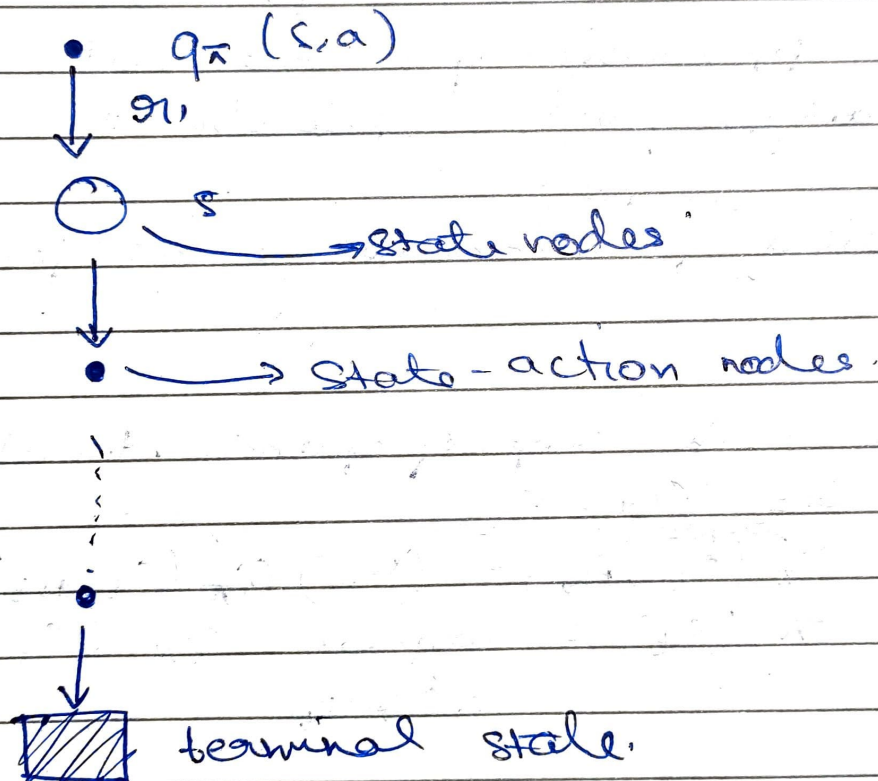 qπ (s,a)
r,
s
state nodes
state-action nodes.
terminal state.